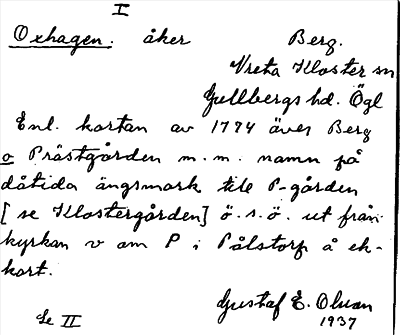 I
Oxhagen. åker Berg.
Vreta Kloster sn
Gullbergs hd. Ögl
Enl. kartan av 1774 över Berg
o Prästgården m.m. namn på
dåtida ängsmark till P-gården
[se Klostergården] ö.s.ö. ut från
kyrkan v om P i Pålstorp å ek-
kart.
Gustaf E. Olson
Se II 1937